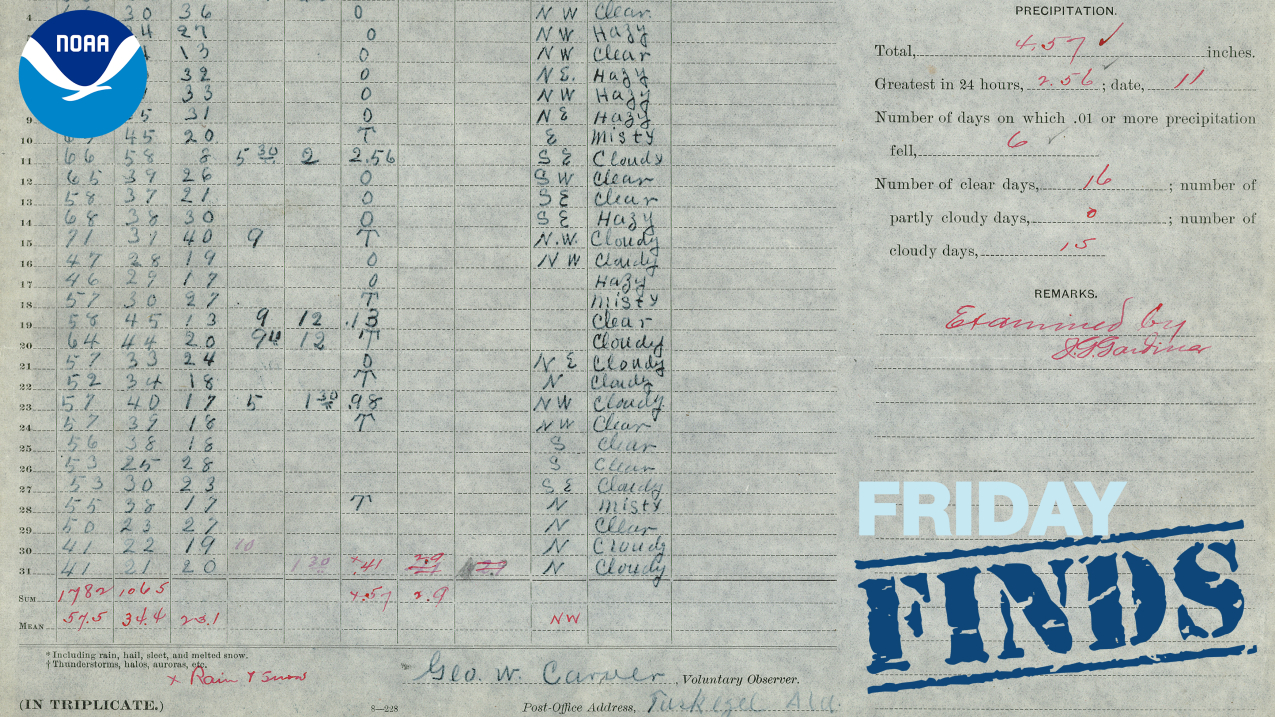 NOAA
4 30 36 0 N W Clear
27 0 N W Hazy
13 0 N W Clear
32 0 N E. Hazy
33 0 N W Hazy
9 31 0 N E Hazy
10 45 20 T E Misty
11 66 58 8 5 30 2 2.56 S E Cloudy
12 65 39 26 0 S W Clear
13 58 37 21 0 S E Clear
14 68 38 30 0 S E Hazy
15 71 31 40 9 T N.W. Cloudy
16 47 28 19 0 N W Cloudy
17 46 29 17 0 Hazy
18 57 30 27 T Misty
19 58 45 13 9 12 .13 Clear
20 64 44 20 12 T Cloudy
21 57 33 24 0 N E Cloudy
22 52 34 18 T N Cloudy
23 57 40 17 5 1 30 .98 NW Cloudy
24 57 39 18 T NW Clear
25 56 38 18 S Clear
26 53 25 28 S Clear
27 53 30 23 S E Cloudy
28 55 38 17 T N Misty
29 50 23 27 N Clear
30 41 22 19 10 N Cloudy
31 41 21 20 1 30 + .41 2.9 N Cloudy
SUM 1782 1065 4.57 2.9
MEAN 57.5 34.4 23.1 NW
* Including rain, hail, sleet, and melted snow.
† Thunderstorms, halos, auroras, etc.
x Rain & Snow
Geo. W. Carver, Voluntary Observer.
(IN TRIPLICATE.) 8—228 Post-Office Address, Tuskegee Ala.
PRECIPITATION.
Total, 4.57 ✓ inches.
Greatest in 24 hours, 2.56 ✓; date, 11
Number of days on which .01 or more precipitation
fell, 6 ✓
Number of clear days, 16; number of
partly cloudy days, 0; number of
cloudy days, 15
REMARKS.
Examined by
J.G. Gardiner
FRIDAY
FINDS